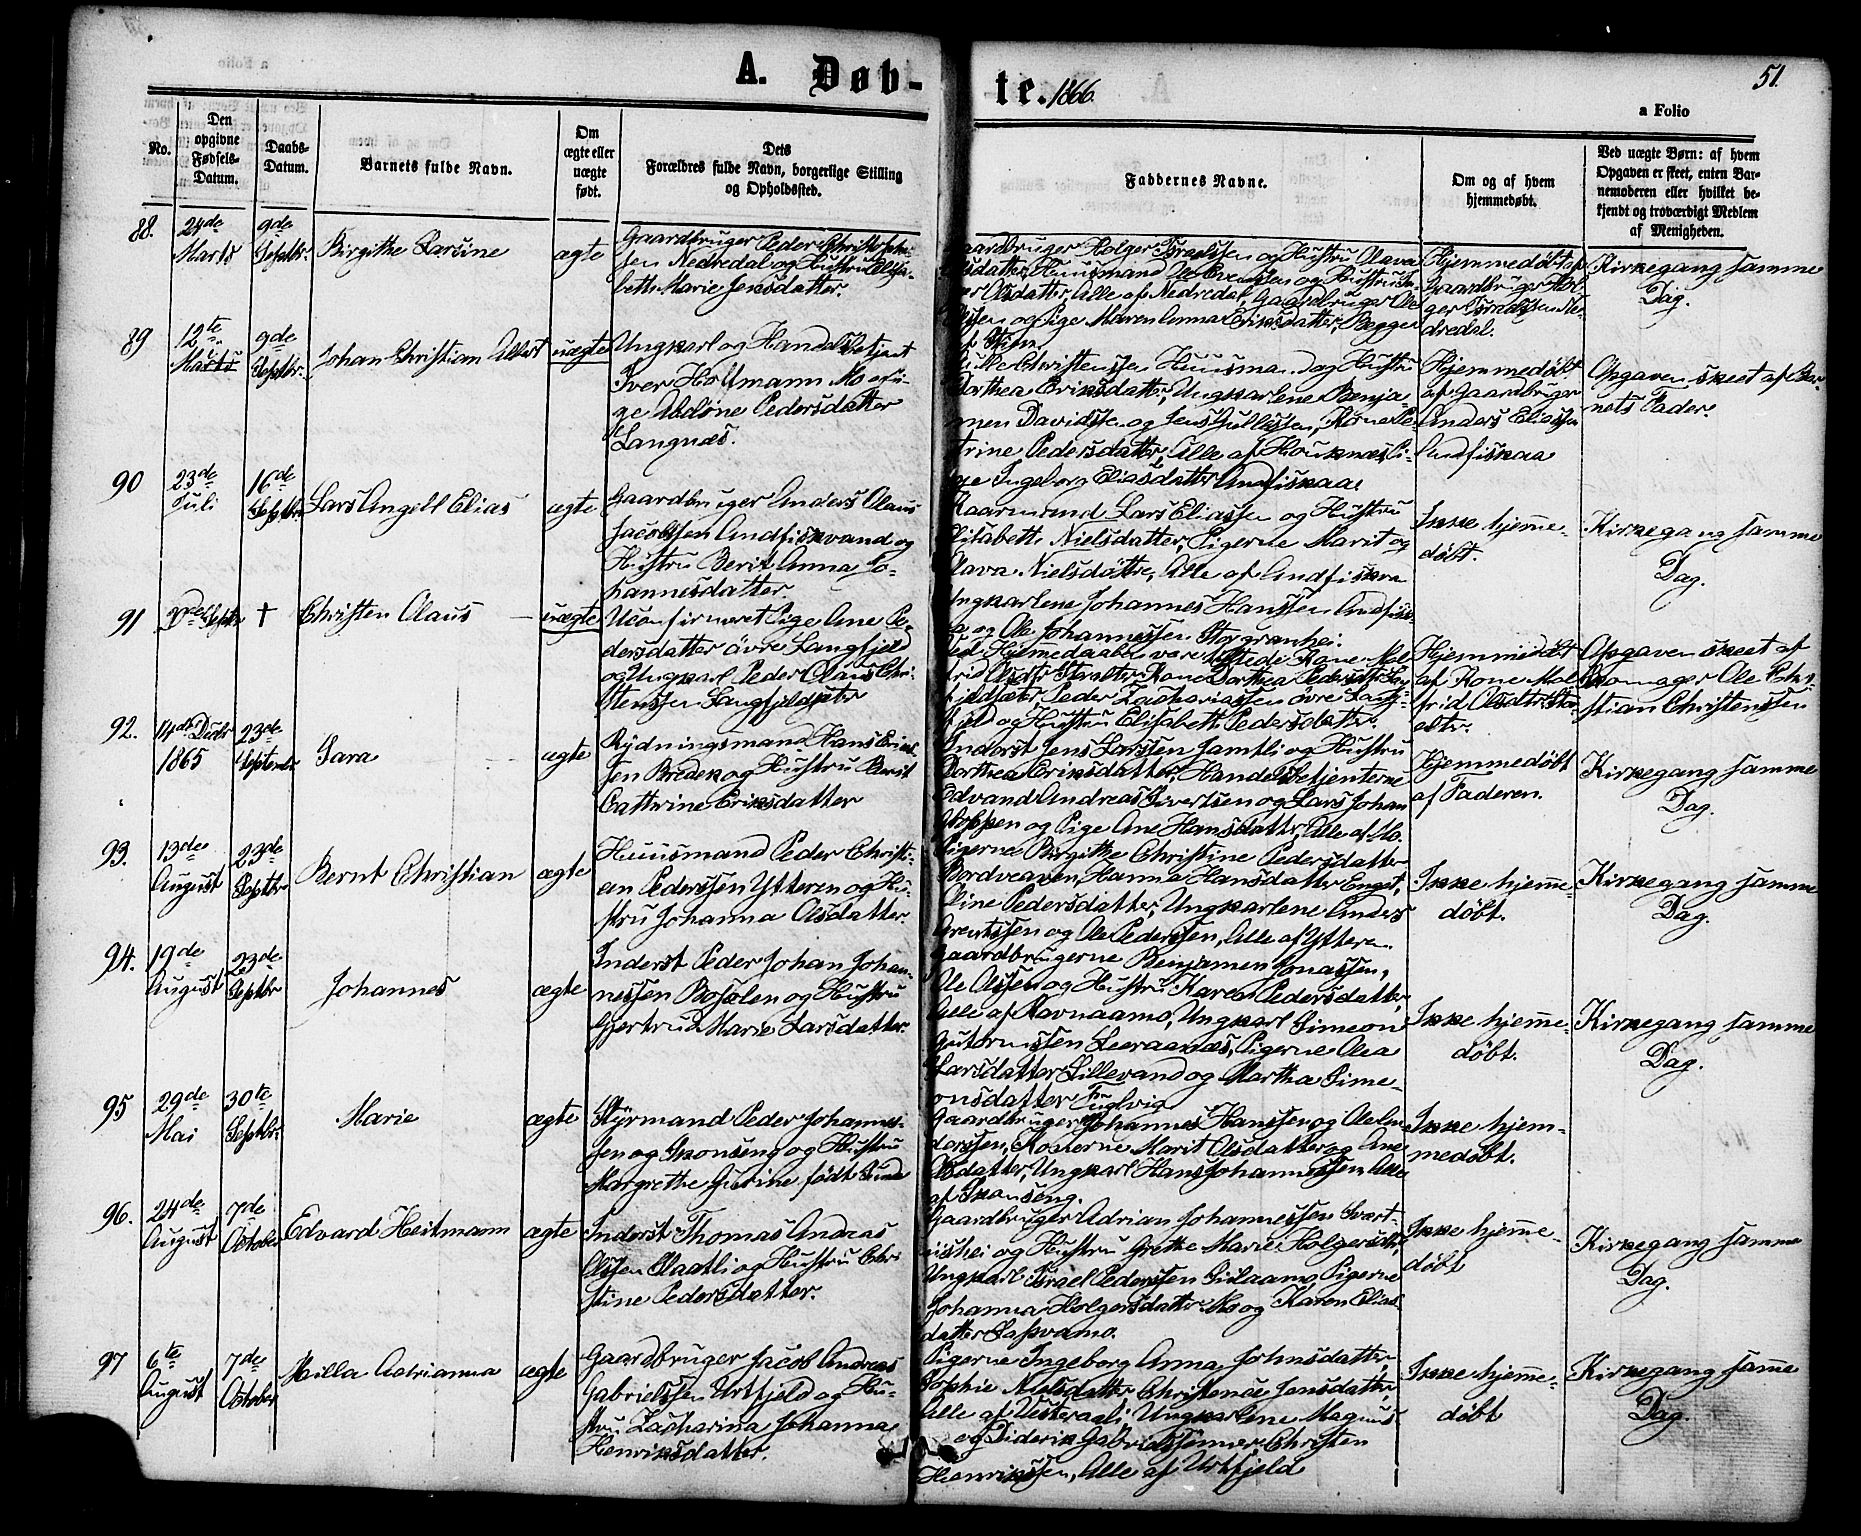 A. Døb-
te. 1866.
51.
a Folio
No.
Den opgivne Fødsels-Datum.
Daabs-Datum.
Barnets fulde Navn.
Om ægte eller uægte født.
Dets Forældres fulde Navn, borgerlige Stilling og Opholdssted.
Faddernes Navne.
Om og af hvem hjemmedøbt.
Ved uægte Børn: af hvem Opgaven er skeet, enten Barnemoderen eller hvilket bekjendt og troværdigt Medlem af Menigheden.
88.
24de Marts
9de Septbr.
Birgithe Larsine
ægte
Gaardbruger Peder
sen Nedredal og Hustru Elisa-
beth Marie Jensdatter.
Gaardbruger Holger Israelsen og Hustru Olava
Huusmand Ole og Hustru
Olsdatter, Alle af Nedredal, Gaardbruger Ole
og Pige Maren Anna Eriksdatter, Begge
Hjemmedøbt af
Gaardbruger Hol-
ger Israelsen Ne-
dredal.
Kirkegang samme
Dag.
89
12te Marts
9de Septbr.
Johan Christian Albert
uægte
Ungkarl og Handelsbetjent
Iver Holtmann Mo og Pi-
ge Abelone Pedersdatter
Langnæs.
Christensen Huusmand og Hustru
Dorthea Eriksdatter, Ungkarlene Benja-
men Davidsen og Jens Kone Pe-
trine Pedersdatter, Alle af Pi-
ge Ingeborg Eliasdatter Andfiskaa
Hjemmedøbt
af Gaardbruger
Anders Eliassen
Andfiskaa
Opgaven skeet af Bar-
nets Fader.
90
23de Juli
16de Septbr.
Lars Angell Elias
ægte
Gaardbruger Anders Olaus
Jacobsen Andfiskvand og
Hustru Berit Anna Jo-
hannesdatter.
Kaarmand Lars Eliassen og Hustru
Elisabeth Nielsdatter, Pigerne Marit og
Olava Nielsdøttre, Alle af
Ungkarlene Johannes Hanssen
og Ole Johannessen Storgranhei.
Ikke hjemme-
døbt.
Kirkegang samme
Dag.
91
Septbr
†
Christen Olaus
uægte
Uconfirmeret Pige Ane Pe-
dersdatter övre Langfjeld
og Ungkarl Peder Olaus Chri-
stenssen Langfjeldsæter
Ved Hjemmedaaben vare tilstede Kone
Kone Dorthea Pedersdtr
Peder Zachariassen övre Lang-
fjeld og Hustru Elisabeth Pedersdatter.
Hjemmedøbt
af Kone Mal-
frid Olsdtr.
Opgaven skeet af
Ole Chri-
stian Christenssen
92.
14de Decbr 1865
23de September
Sara
ægte
Rydningsmand Hans Erik-
sen Bredek og Hustru Berit
Cathrine Eriksdatter
Inderst Jens Larssen Jamtli og Hustru
Dorthea Eriksdatter, Handelsbetjenterne
Edvard Andreas Sivertsen og Lars Johan
og Pige Ane Hansdatter, Alle af Mo.
Hjemmedøbt
af Faderen.
Kirkegang samme
Dag.
93.
13de August
23de Septbr
Bernt Christian
ægte
Huusmand Peder Christi-
an Pederssen Ytteren og Hu-
stru Johanna Olsdatter.
Pigerne Birgithe Christine Pedersdatter
Hanna Hansdatter
Eline Pedersdatter, Ungkarlene Anders
og Ole Pederssen, Alle af Ytteren.
Ikke hjemme-
døbt.
Kirkegang samme
Dag.
94.
19de August
23de Septbr
Johannes
ægte
Inderst Peder Johan Johan-
nessen og Hustru
Gjertrud Marie Larsdatter.
Gaardbrugerne Benjamen Jonassen,
Ole Olssen og Hustru Karen Pedersdatter,
Alle af Ravnaamo, Ungkarl Simeon
Pigerne Olea
Larsdatter Lillevand og Martha Sime-
onsdatter Fuglvig
Ikke hjemme-
døbt.
Kirkegang samme
Dag.
95
29de Mai
30te Septbr.
Marie
ægte
Styrmand Peder Johannes-
sen og Skonseng og Hustru
Margrethe Gurine født
Gaardbrugerne Johannes Hanssen og Ole
Konerne Marit Olsdatter og Ane
Olsdatter, Ungkarl Hans Johannessen Alle
af Skonseng.
Ikke hjem-
medøbt.
96.
24de August
7de October
Edvard Heitmann
ægte
Inderst Thomas Andreas
Olssen og Hustru Chri-
stine Pedersdatter.
Gaardbruger Adrian Johannessen Svart-
og Hustru Grethe Marie Holgersdtr,
Ungkarl Israel Pederssen Pigerne
Johanna Holgersdatter Mo og Karen Elias-
datter
Ikke hjemme-
døbt
Kirkegang samme
Dag.
97
6te August
7de October
Milla Adrianna
ægte
Gaardbruger Jacob Andreas
Gabrielssen Urtfjeld og Hu-
stru Zacharina Johanna
Henriksdatter.
Pigerne Ingeborg Anna Johnsdatter,
Sophie Nielsdatter, Christense Jensdatter,
Alle af Vesteraali, Ungkarlene Magnus
og Diderik Gabrielssønner, Christen
Henrikssen, Alle af Urtfjeld
Ikke hjemme-
døbt
Kirkegang samme
Dag.